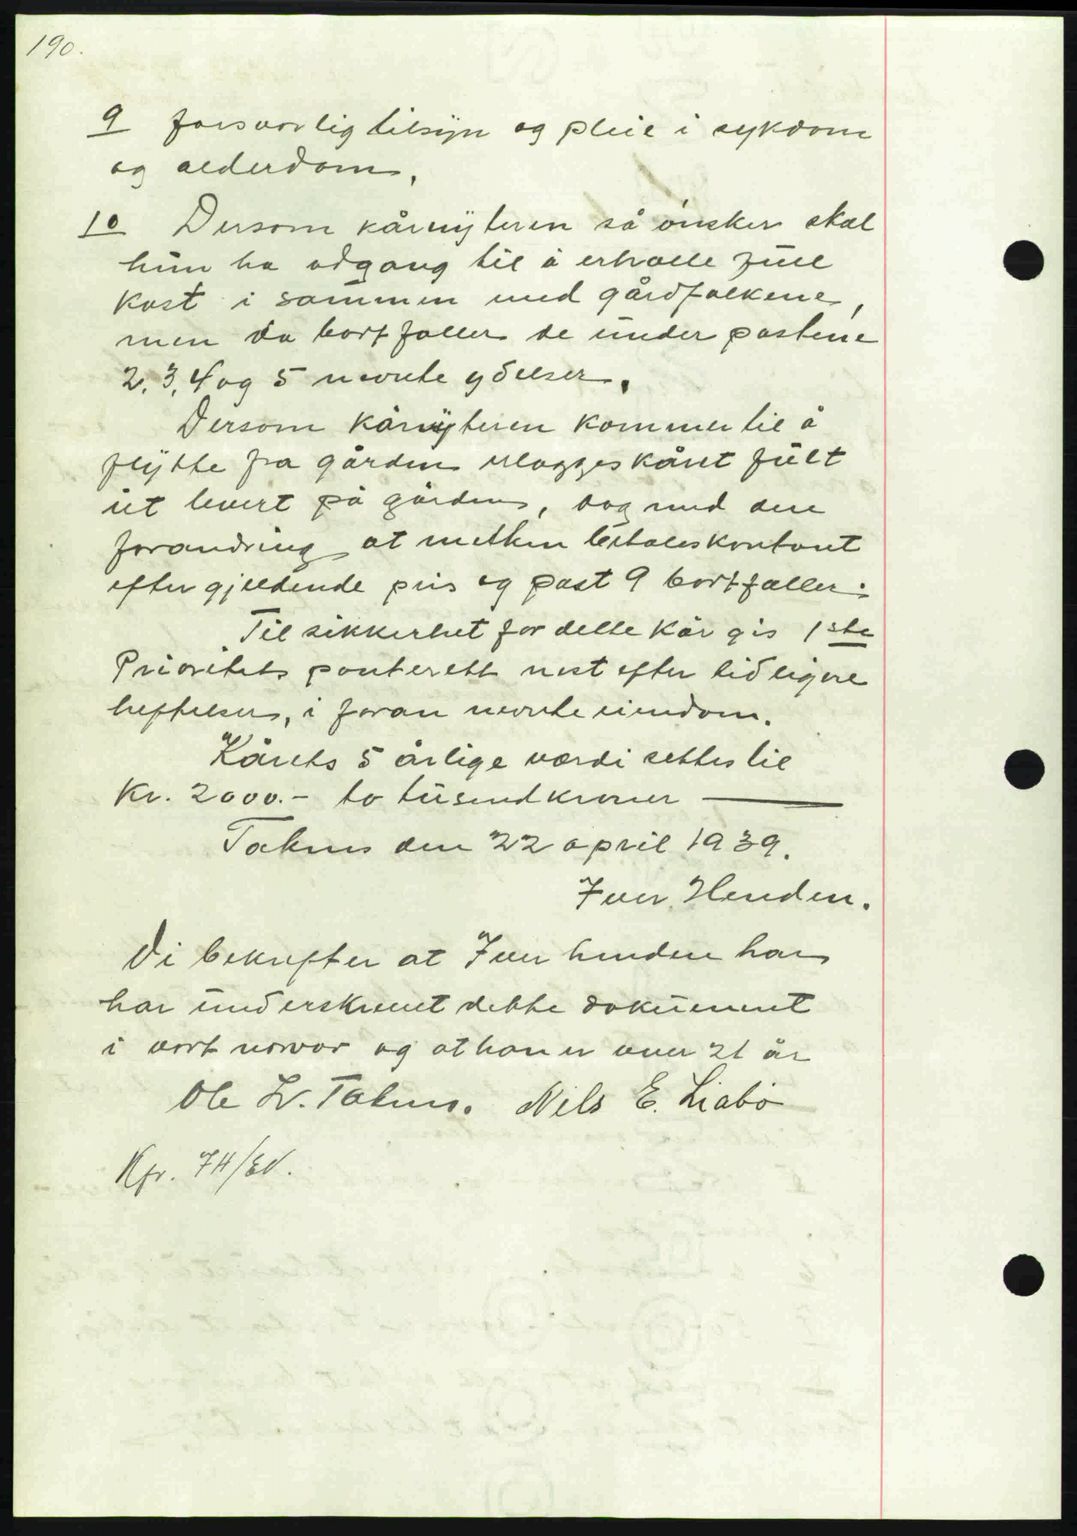 190.
9 forsvarlig tilsyn og pleie i sykdom
og alderdom.
10 Dersom kårnyteren så ønsker skal
hun ha adgang til å erholde full
kost i sammen med gårdfolkene,
men da bortfaller de under postene
2, 3, 4 og 5 nevnte ydelser.
Dersom kårnyteren kommer til å
flytte fra gården utlegges kåret fult
ut levert på gården, dog med den
forandring at melken betales kontant
efter gjeldende pris og post 9 bortfaller.
Til sikkerhet for dette kår gis 1ste
Prioritets panterett nest efter tidligere
heftelser, i foran nevnte eiendom.
Kårets 5 årlige værdi settes til
Kr. 2000.- to tusend kroner
Takus den 22 april 1939.
Iver Henden.
Vi bekrefter at Iver Henden har
har underskrevet dette dokument
i vort nærvær og at han er over 21 år
Ole Takus. Nils E. Liabø
Kfr. 74/